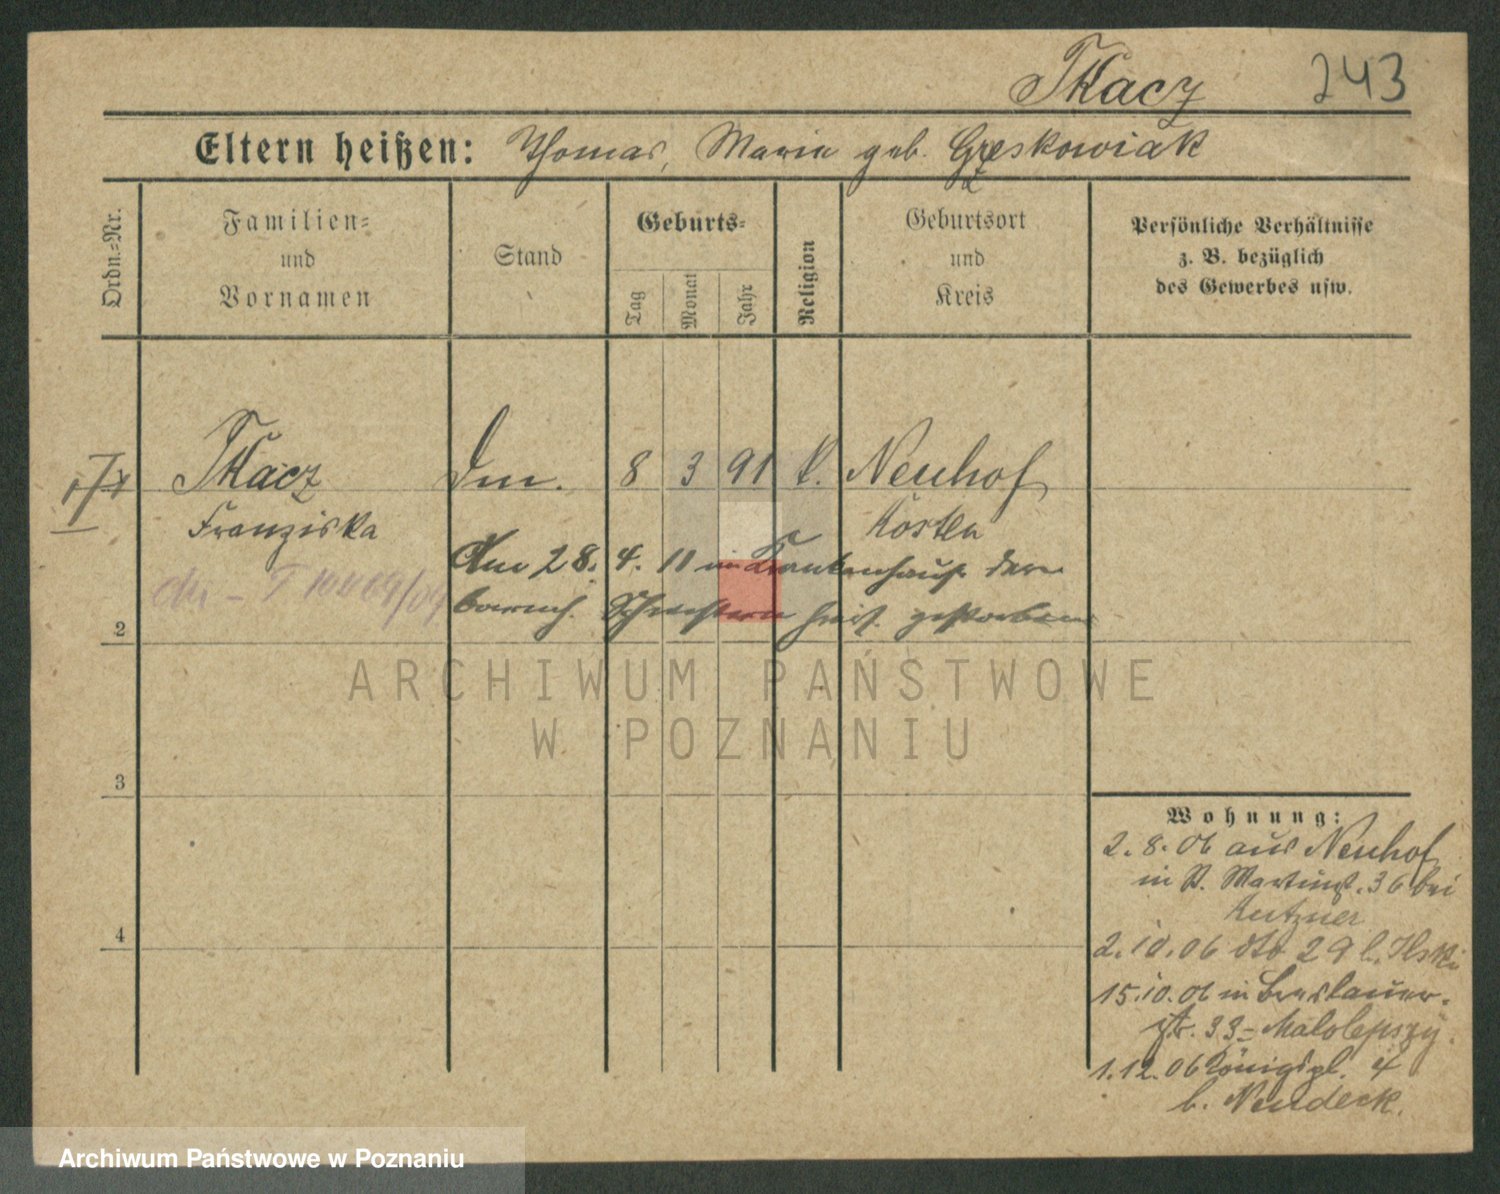 Tkacz 243
Eltern heißen: Thomas, Marie geb. Grzeskowiak
Ordn.=Nr.
Familien=
und
Vornamen
Stand
Geburts=
Tag
Monat
Jahr
Religion
Geburtsort
und
Kreis
Persönliche Verhältnisse
z. B. bezüglich
des Gewerbes usw.
Tkacz Dm. 8 3 91 k. Neuhof
Franziska Kosten
Am 28. 4. 11 im Krankenhause der
barmh. Schwestern hies. gestorben
2
3
4
Wohnung:
2. 8. 06 aus Neuhof
in St. Martinst. 36 bei
Kutzner
2. 10. 06 dto 29 b.
15. 10. 06 in Breslauer-
str. 33 = Malolepszy.
1. 12. 06 Königspl. 4
b. Neudeck.
ARCHIWUM PAŃSTWOWE
W POZNANIU
Archiwum Państwowe w Poznaniu